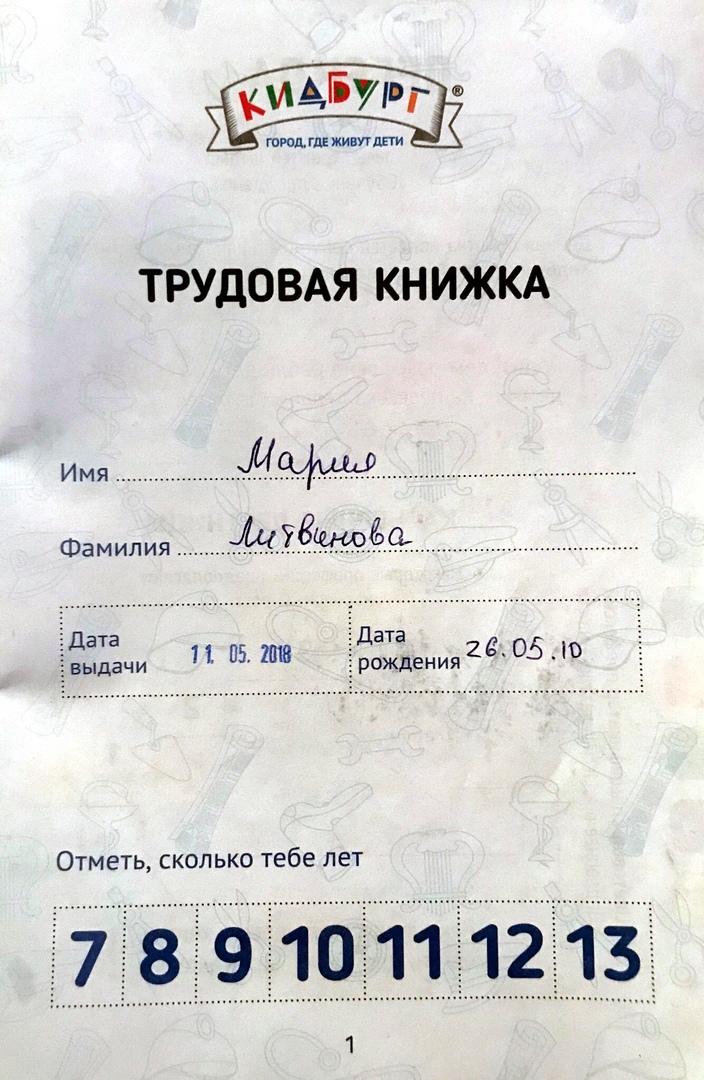 КИДБУРГ®
ГОРОД, ГДЕ ЖИВУТ ДЕТИ
ТРУДОВАЯ КНИЖКА
Имя Мария
Фамилия Литвинова
Дата выдачи 11. 05. 2018
Дата рождения 26.05.10
Отметь, сколько тебе лет
7 8 9 10 11 12 13
1